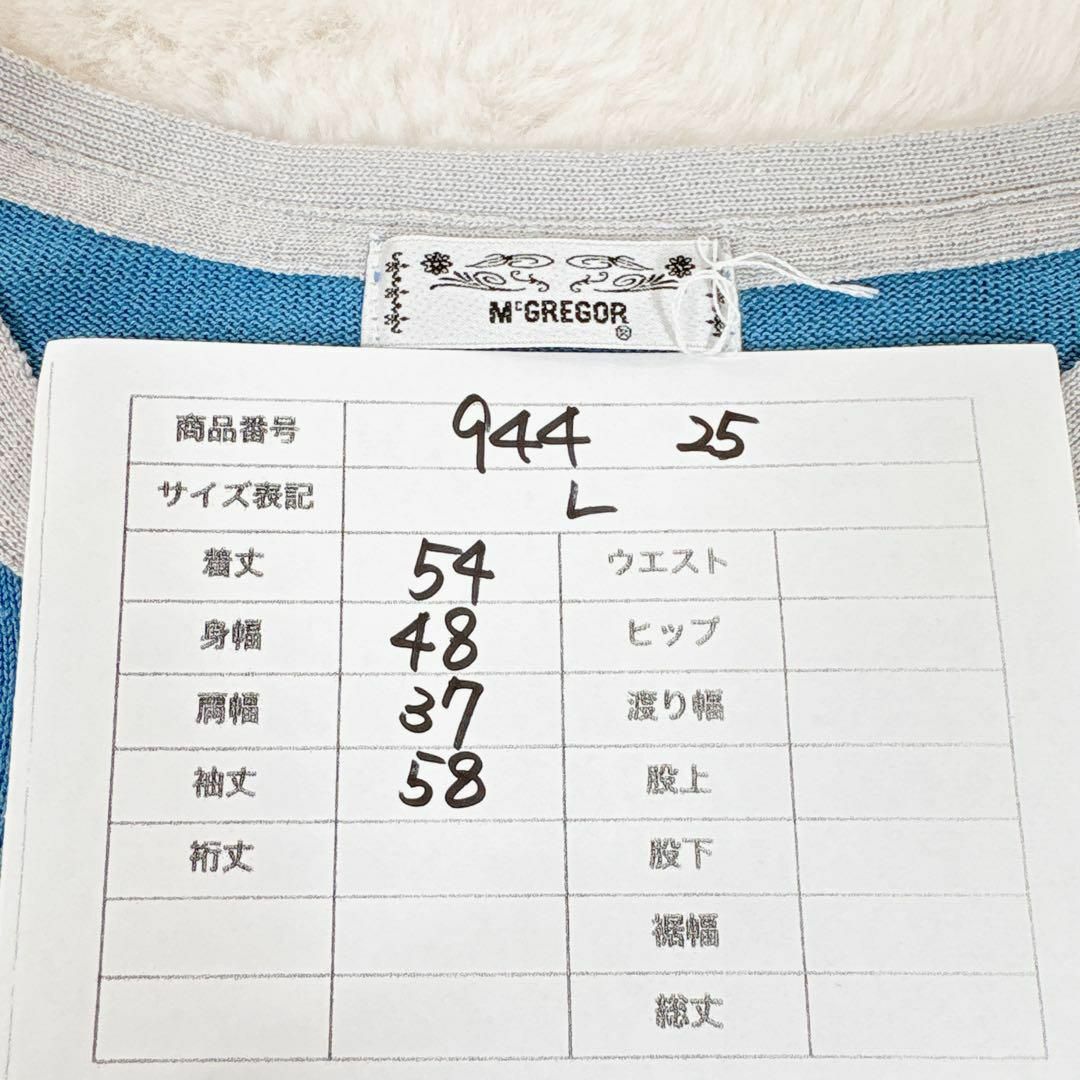 McGREGOR
商品番号 944 25
サイズ表記 L
着丈 54 ウエスト
身幅 48 ヒップ
肩幅 37 渡り幅
袖丈 58 股上
裄丈 股下
裾幅
総丈